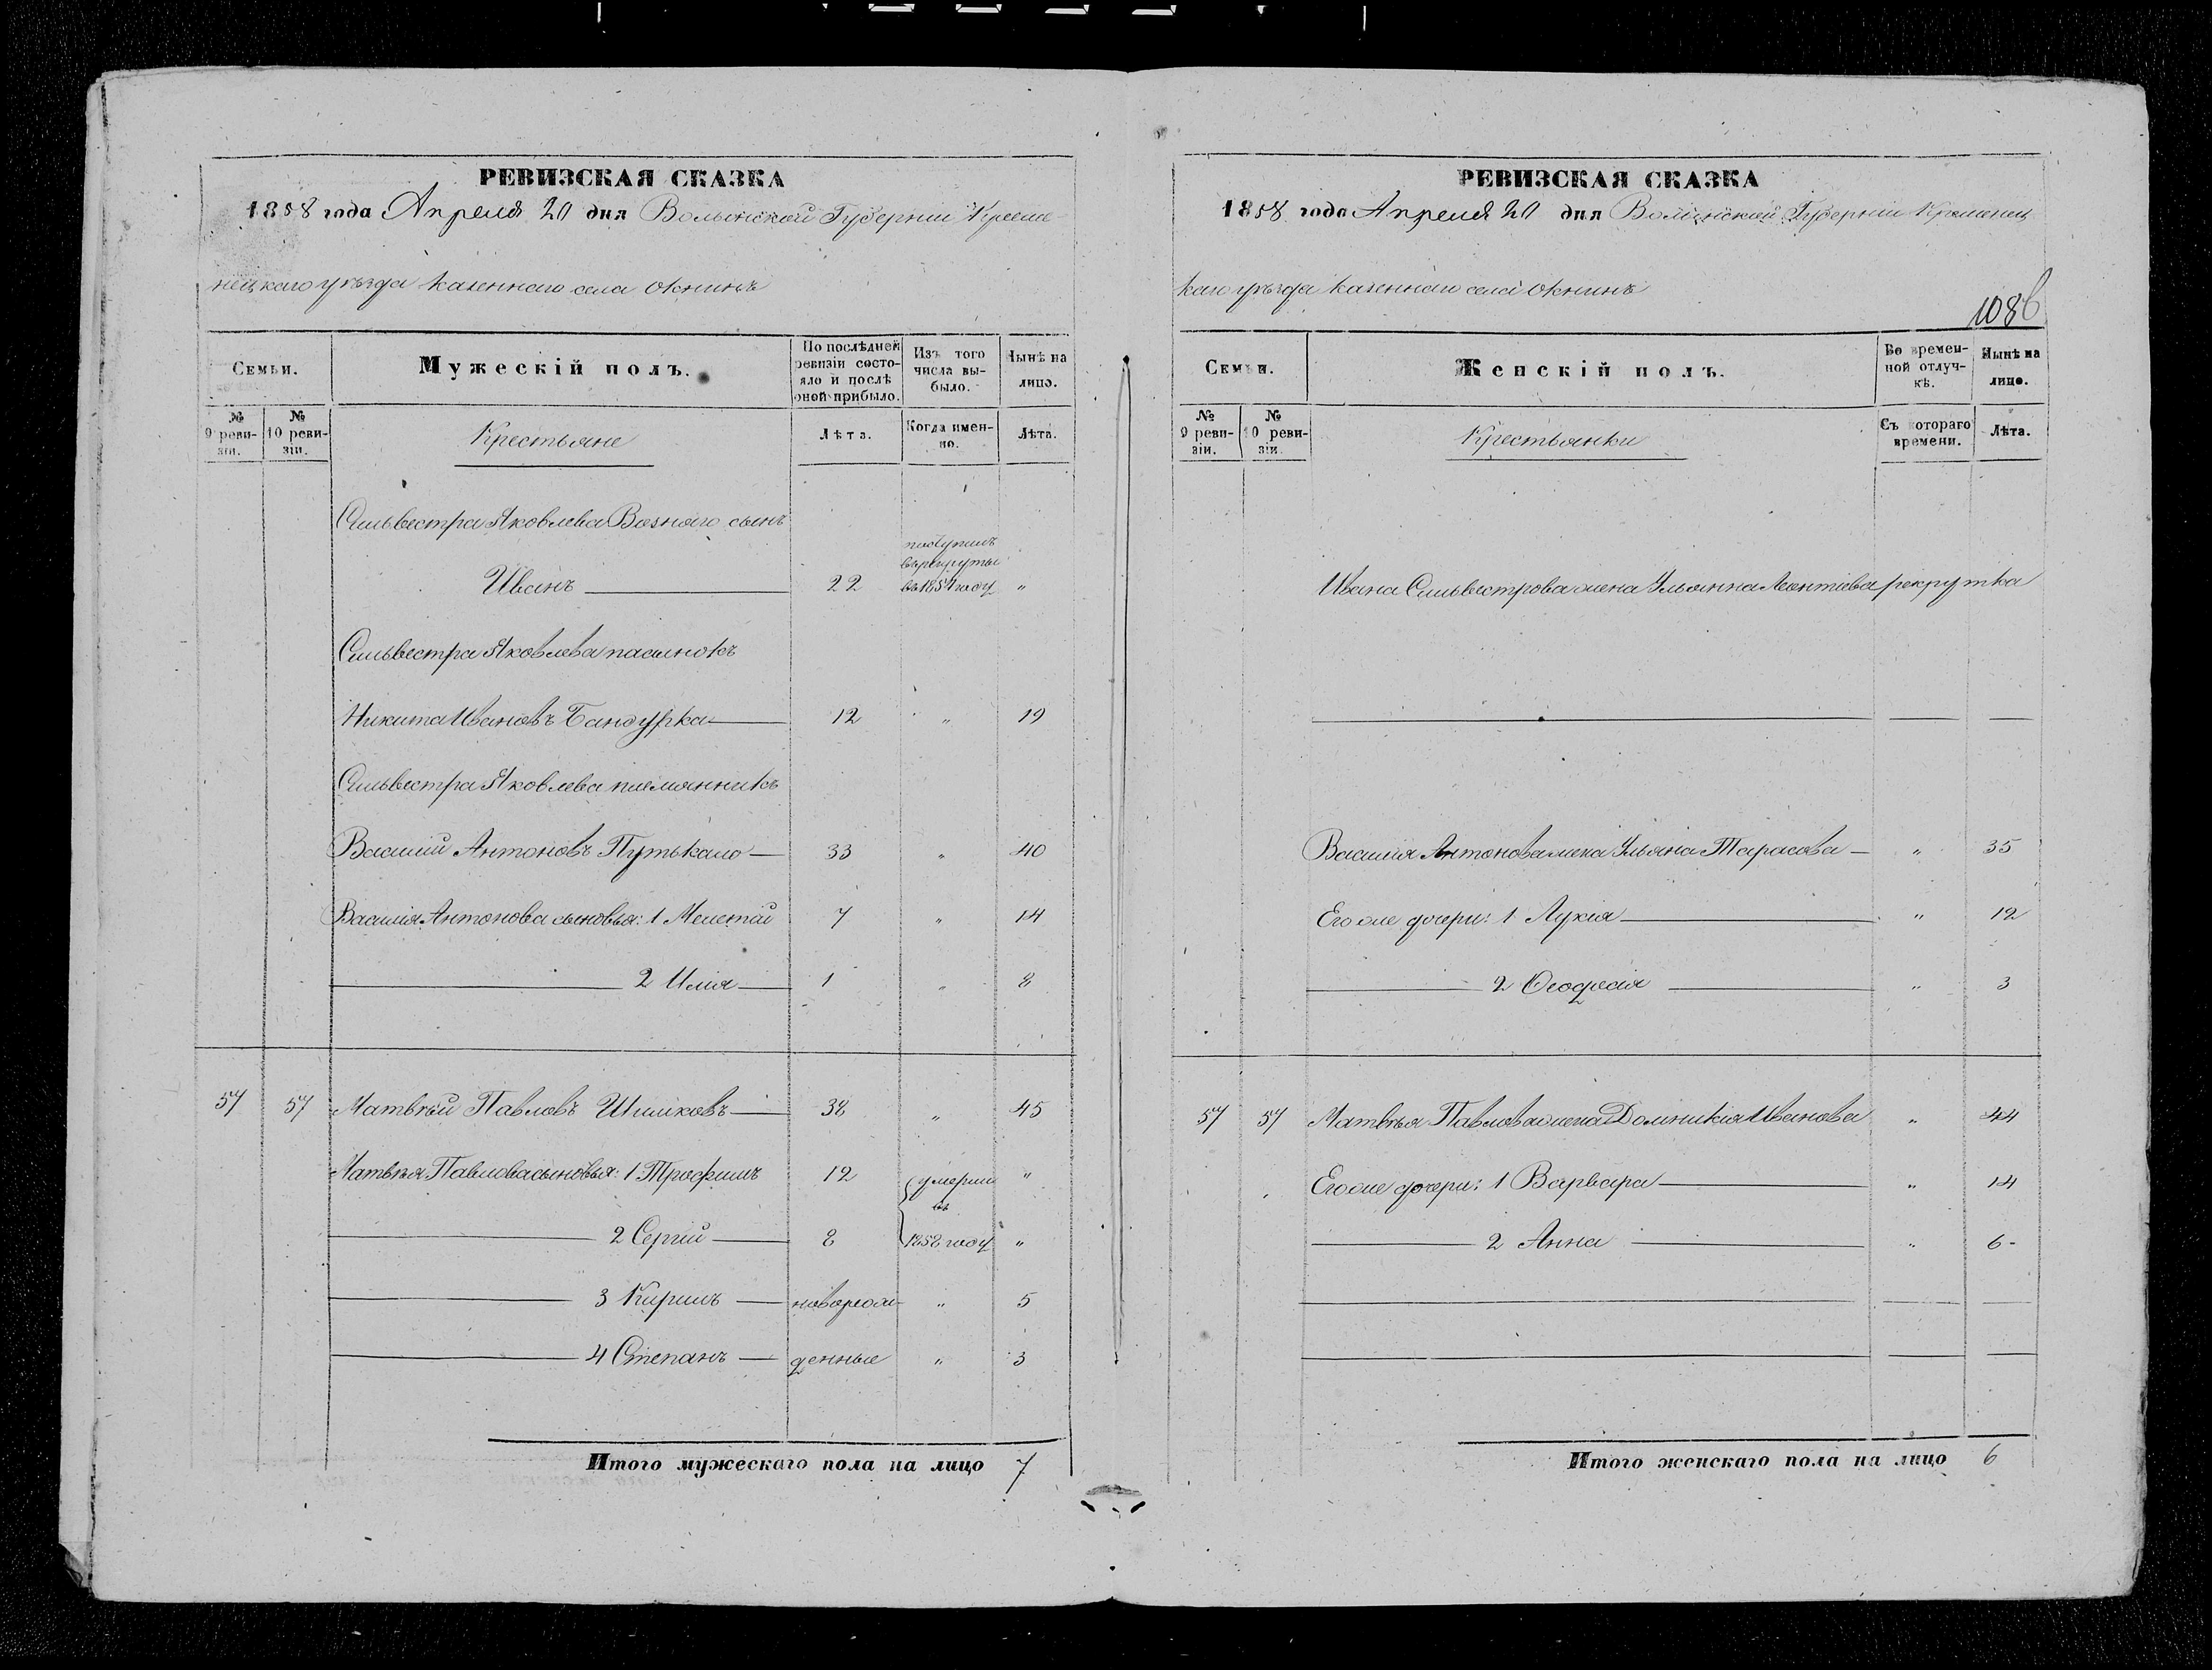 РЕВИЗСКАЯ СКАЗКА
1858 года Апреля 20 дня Волынской Губернии Кремe-
нецкаго уѣзда казеннаго села Окнинъ
Семьи.
Мужескій полъ.
По послѣдней ревизіи состояло и послѣ оной прибыло.
Изъ того числа выбыло.
Нынѣ на лицо.
№ 9 ревизіи.
№ 10 ревизіи.
Крестьяне
Лѣта.
Когда именно.
Лѣта.
Сильвестра Яковлева Вознаго сынъ
поступилъ
въ рекруты
Иванъ 22 въ 1854 году "
Сильвестра Яковлева пасынокъ
Никита Ивановъ Бандурка 12 " 19
Сильвестра Яковлева племянникъ
Василий Антоновъ Путькало 33 " 40
Василія Антонова сыновья: 1 Мелетій 7 " 14
2 Илия 1 " 8
57 57 Матвѣй Павловъ Шишковъ 38 " 45
Матвѣя Павлова сыновья: 1 Трофимъ 12 умерли "
въ
2 Сергій 8 1852 году "
3 Кирилъ новорож- " 5
4 Степанъ денные " 3
Итого мужескаго пола на лицо 7
РЕВИЗСКАЯ СКАЗКА
1858 года Апреля 20 дня Волынской Губернии Кременец
каго уѣзда казеннаго села Окнинъ
108б
Семьи.
Женскій полъ.
Во временной отлучкѣ.
Нынѣ на лицо.
№ 9 ревизіи.
№ 10 ревизіи.
Крестьянки
Съ котораго времени.
Лѣта.
Ивана Сильвестрова жена Ульянна Леонтіева рекрутка
Василія Антонова жена Ульяна Тарасова " 35
Его же дочери: 1 Лукія " 12
2 Феодосія " 3
57 57 Матвѣя Павлова жена Доминикія Иванова " 44
Его же дочери: 1 Варвара " 14
2 Анна " 6
Итого женскаго пола на лицо 6